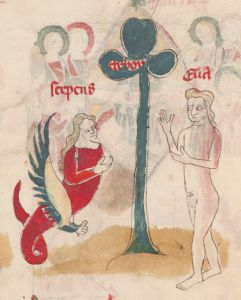 Arbor
Eua
serpens